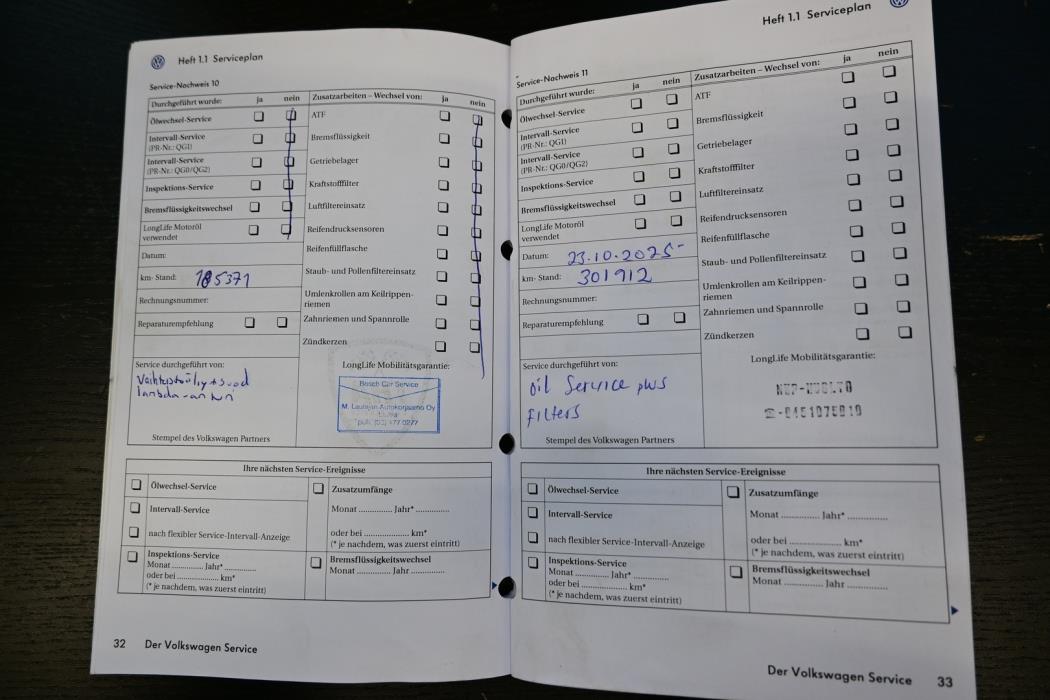 Heft 1.1 Serviceplan
Service-Nachweis 10
Durchgeführt wurde: ja nein
Ölwechsel-Service
Intervall-Service
(PR-Nr.: QG1)
Intervall-Service
(PR-Nr.: QG0/QG2)
Inspektions-Service
Bremsflüssigkeitswechsel
LongLife Motoröl
verwendet
Datum:
km- Stand: 185371
Rechnungsnummer:
Reparaturempfehlung
Zusatzarbeiten – Wechsel von: ja nein
ATF
Bremsflüssigkeit
Getriebelager
Kraftstofffilter
Luftfiltereinsatz
Reifendrucksensoren
Reifenfüllflasche
Staub- und Pollenfiltereinsatz
Umlenkrollen am Keilrippen-
riemen
Zahnriemen und Spannrolle
Zündkerzen
Service durchgeführt von:
lambda-anturi
Stempel des Volkswagen Partners
LongLife Mobilitätsgarantie:
Bosch Car Service
M. Autokorjaamo Oy
puh. (03) 477 0277
Ihre nächsten Service-Ereignisse
Ölwechsel-Service
Intervall-Service
nach flexibler Service-Intervall-Anzeige
Inspektions-Service
Monat ............ Jahr* ............
oder bei ............ km*
(* je nachdem, was zuerst eintritt)
Zusatzumfänge
Monat ............ Jahr* ............
oder bei ............ km*
(* je nachdem, was zuerst eintritt)
Bremsflüssigkeitswechsel
Monat ............ Jahr ............
32 Der Volkswagen Service
Heft 1.1 Serviceplan
Service-Nachweis 11
Durchgeführt wurde: ja nein
Ölwechsel-Service
Intervall-Service
(PR-Nr.: QG1)
Intervall-Service
(PR-Nr.: QG0/QG2)
Inspektions-Service
Bremsflüssigkeitswechsel
LongLife Motoröl
verwendet
Datum: 23.10.2025-
km- Stand: 301912
Rechnungsnummer:
Reparaturempfehlung
Zusatzarbeiten – Wechsel von: ja nein
ATF
Bremsflüssigkeit
Getriebelager
Kraftstofffilter
Luftfiltereinsatz
Reifendrucksensoren
Reifenfüllflasche
Staub- und Pollenfiltereinsatz
Umlenkrollen am Keilrippen-
riemen
Zahnriemen und Spannrolle
Zündkerzen
Service durchgeführt von:
oil Service plus
filters
Stempel des Volkswagen Partners
LongLife Mobilitätsgarantie:
Ihre nächsten Service-Ereignisse
Ölwechsel-Service
Intervall-Service
nach flexibler Service-Intervall-Anzeige
Inspektions-Service
Monat ............ Jahr* ............
oder bei ............ km*
(* je nachdem, was zuerst eintritt)
Zusatzumfänge
Monat ............ Jahr* ............
oder bei ............ km*
(* je nachdem, was zuerst eintritt)
Bremsflüssigkeitswechsel
Monat ............ Jahr ............
Der Volkswagen Service 33